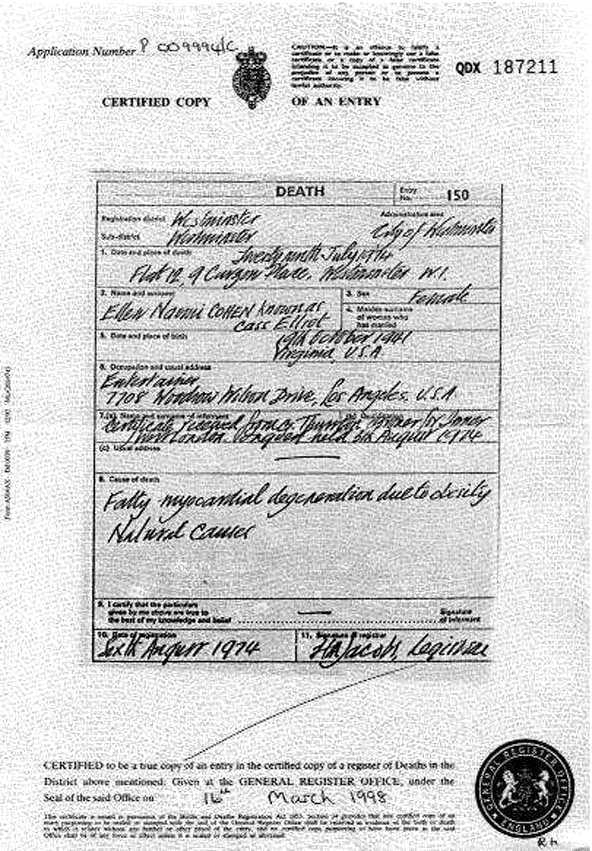 Application Number P 009994/C
CAUTION—It is an offence to falsify a
certificate or to make or knowingly use a false
certificate or a copy of a false certificate
intending it to be accepted as genuine to the
prejudice of any person or to possess a
certificate knowing it to be false without
lawful authority.
QDX 187211
CERTIFIED COPY OF AN ENTRY
DEATH
Entry No. 150
Registration district Westminster
Administrative area
Sub-district Westminster
City of Westminster
1. Date and place of death
Twenty ninth July 1974
Flat 12, 9 Curzon Place, Westminster W.1.
2. Name and surname
Ellen Naomi COHEN known as
Cass Elliot
3. Sex Female
4. Maiden surname
of woman who
has married
5. Date and place of birth
19th October 1941
Virginia, U.S.A
6. Occupation and usual address
Entertainer
7708 Woodrow Wilson Drive, Los Angeles, U.S.A
7.(a) Name and surname of informant
(b) Qualification
Certificate received from Thurston Coroner for Inner
West London. Inquest held 5th August 1974
(c) Usual address
8. Cause of death
Fatty myocardial degeneration due to obesity
Natural Causes
9. I certify that the particulars
given by me above are true to
the best of my knowledge and belief
Signature
of informant
10. Date of registration
Sixth August 1974
11. Signature of registrar
Jacobs, Registrar
CERTIFIED to be a true copy of an entry in the certified copy of a register of Deaths in the
District above mentioned. Given at the GENERAL REGISTER OFFICE, under the
Seal of the said Office on 16th March 1998
GENERAL REGISTER OFFICE
ENGLAND